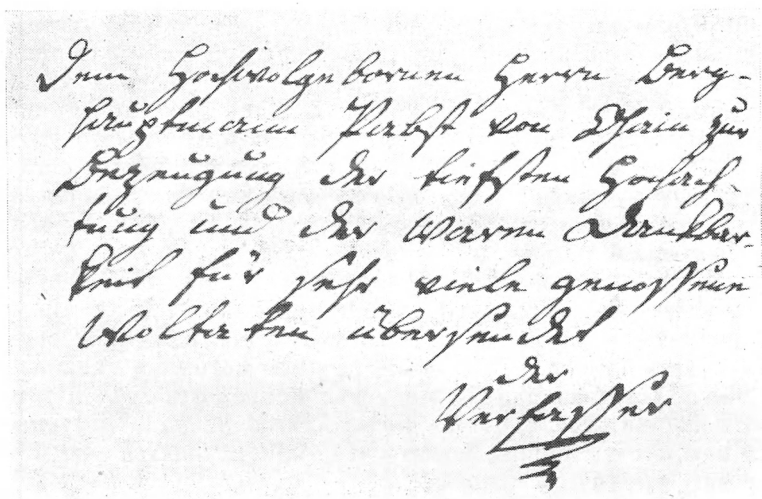 Dem Hochwolgebornen Herrn Berg-
hauptmann Pabst von Ohain zur
Bezeugung der tiefsten Hochach-
tung und der waren Dankbar-
keit für sehr viele genossene
Woltaten übersendet
der
Verfasser